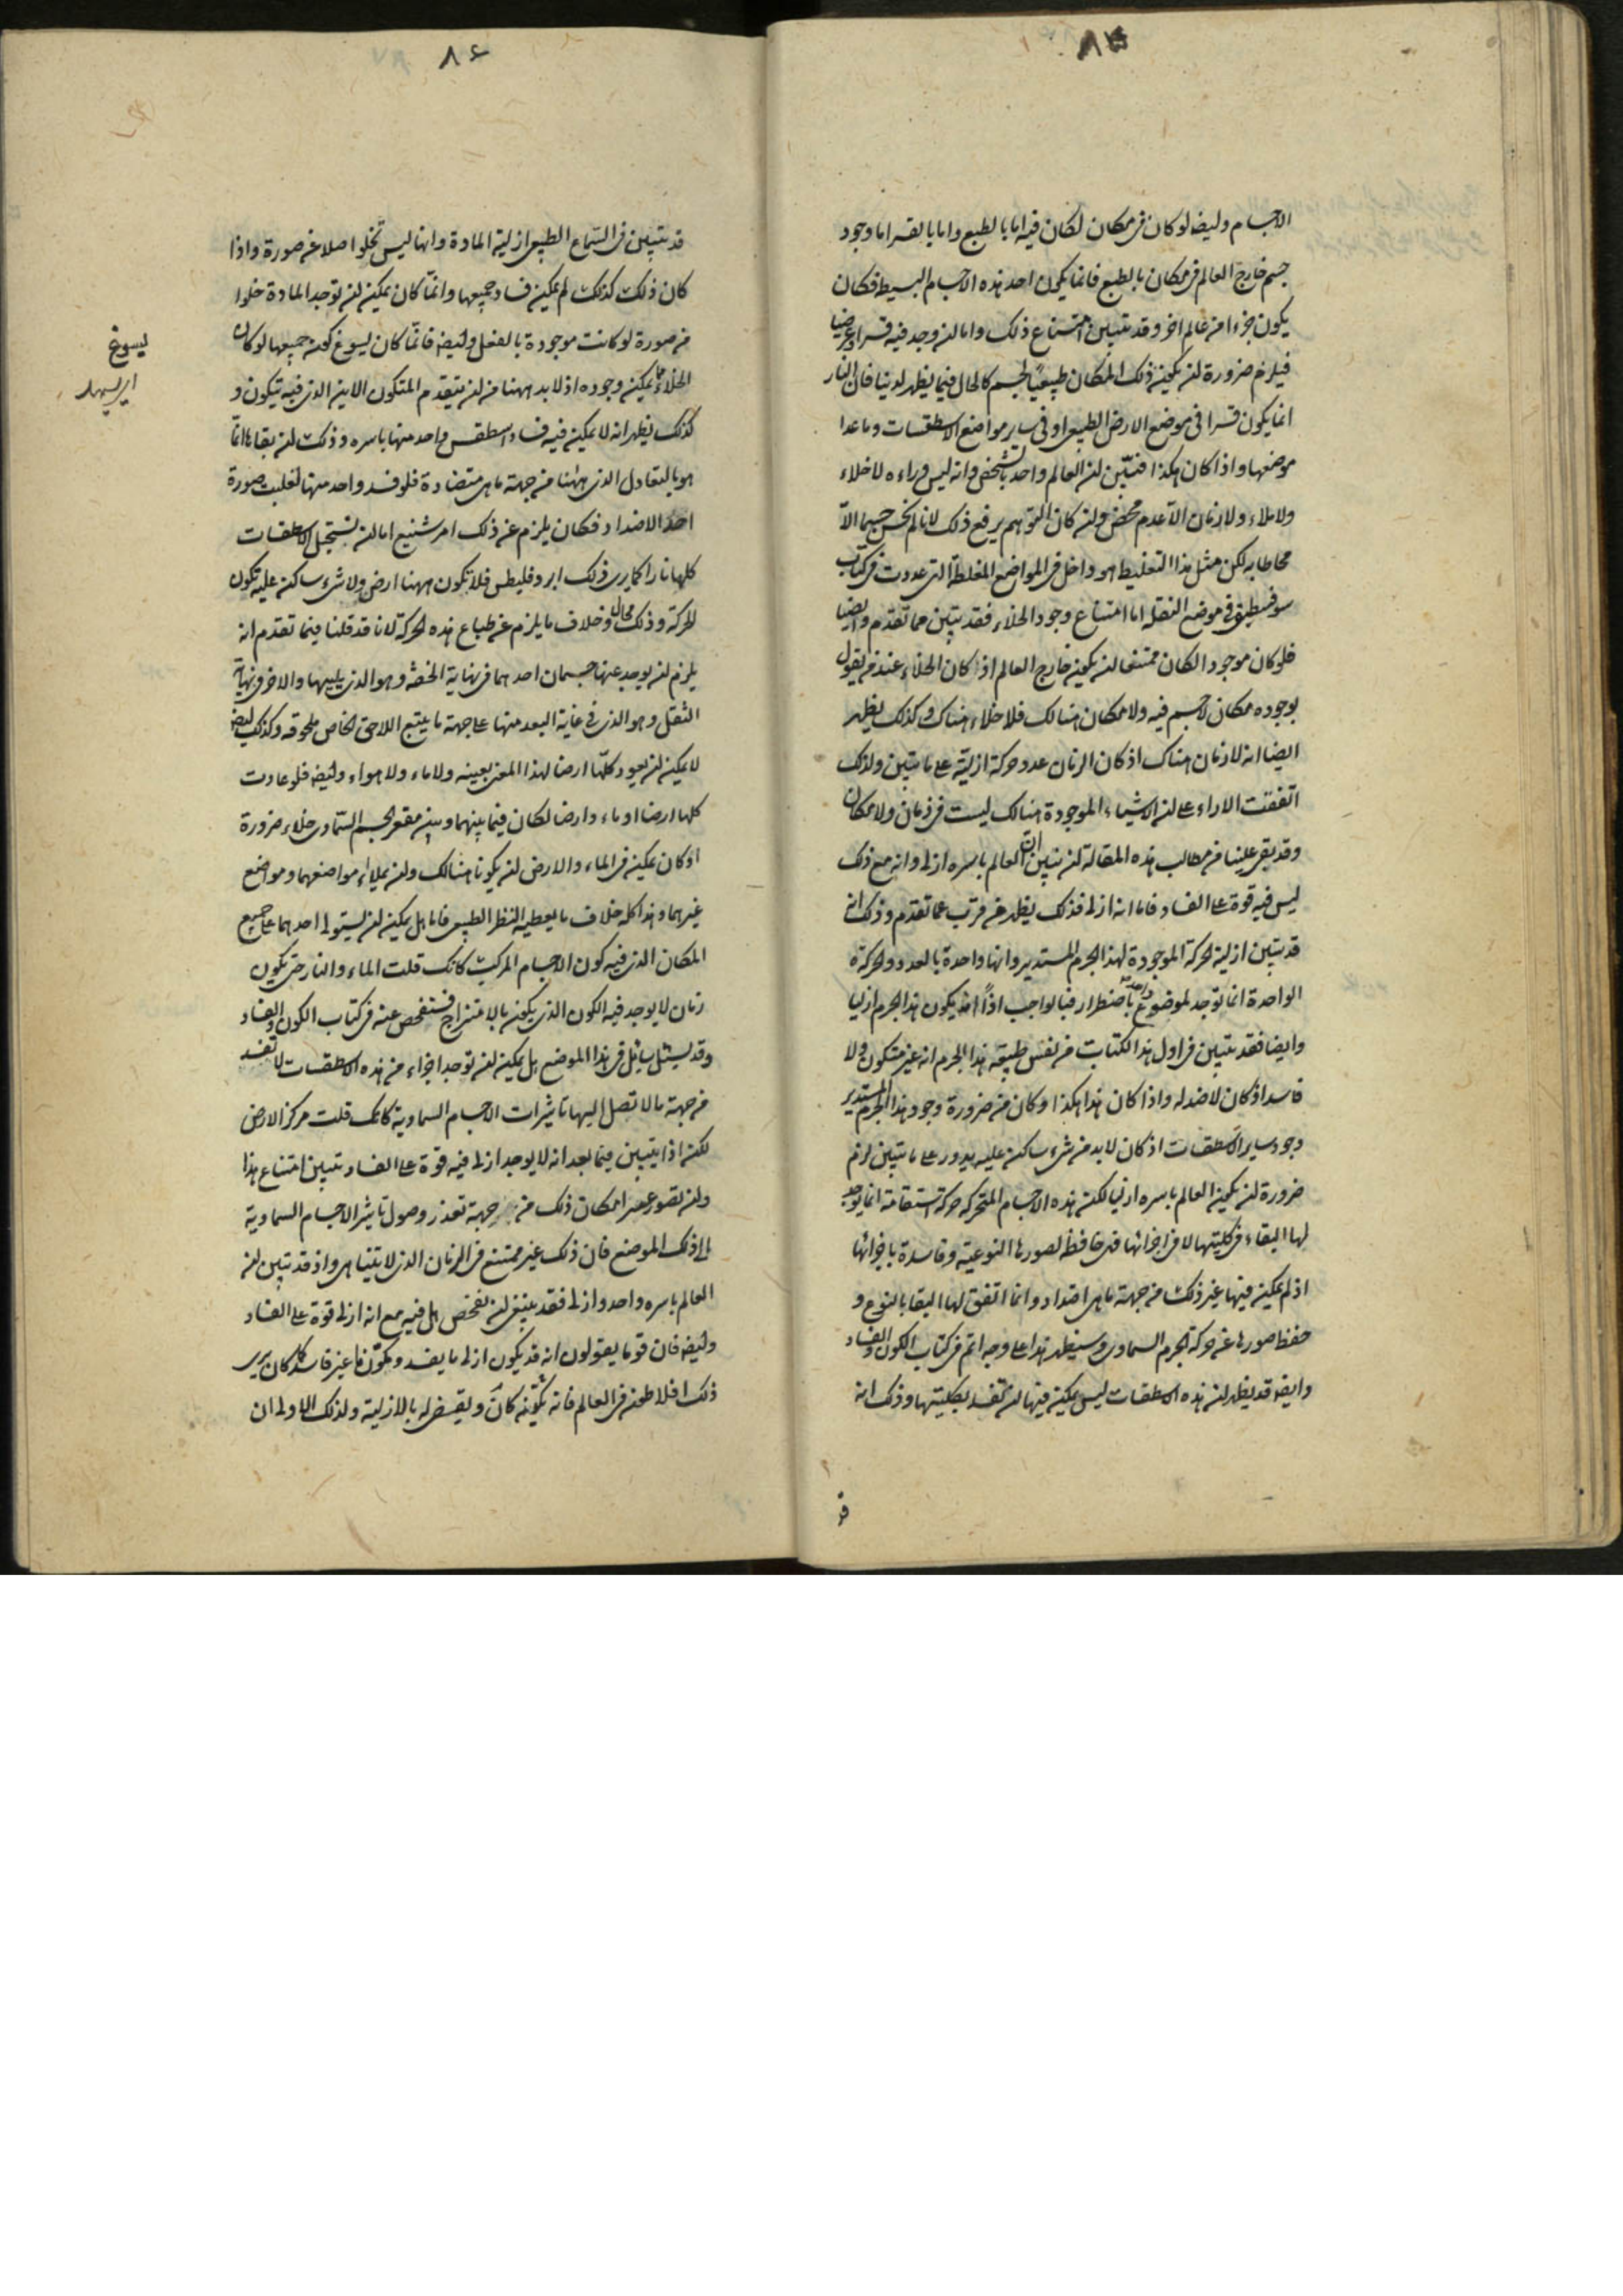 ٨٥
الاجسام وايضا لو كان فى مكان لكان فيه اما بالطبع واما بالقسر اما وجود
جسم خارج العالم فى مكان بالطبع فانما يكون احد هذه الاجسام البسيط فكان
يكون اجزاء من عالم اخر وقد تبين امتناع ذلك واما ان وجد فيه قسرا وعرضيا
فيلزم ضرورة ان يكون ذلك المكان طبيعيا لجسم كالحال فيما يظهر لدينا فان النار
انما يكون قسرا فى موضع الارض الطبيعى او فى ساير مواضع الاسطقسات وما عدا
موضعها واذا كان هكذا فتبين ان العالم واحد بالشخص وانه ليس وراءه لا خلاء
ولا ملاء ولا زمان الا عدم محض وان كان التوهم يرفع ذلك لانا لم نحس جسما الا
محاطا به لكن مثل هذا التغليط هو داخل فى المواضع المغلطة التى عددت فى كتاب
سوفسطيقى فى موضع النقلة اما امتناع وجود الخلاء فقد تبين مما تقدم وايضا
فلو كان موجودا لكان ممتنعا ان يكون خارج العالم اذ كان الخلاء عند من يقول
بوجوده مكان لا جسم فيه ولا مكان هنالك فلا خلاء هناك وكذلك يظهر
ايضا انه لا زمان هناك اذ كان الزمان عدد حركة ازلية على ما تبين ولذلك
اتفقت الاراء على ان الاشياء الموجودة هنالك ليست فى زمان ولا مكان
وقد بقى علينا من مطالب هذه المقالة ان نبين ان العالم باسره ازلى وانه مع ذلك
ليس فيه قوة على الفساد فاما انه ازلى فذلك يظهر عن قرب مما تقدم وذلك انه
قد تبين ازلية الحركة الموجودة لهذا الجرم المستدير وانها واحدة بالعدد والحركة
الواحدة انما توجد لموضوع واحد باضطرار فبالواجب اذاً ان يكون هذا الجرم ازليا
وايضا فقد تبين فى اول هذا الكتاب من نفس طبيعة هذا الجرم انه غير متكون ولا
فاسد اذ كان لا ضد له واذا كان هذا هكذا وكان من ضرورة وجود هذا الجرم المستدير
وجود ساير الاسطقسات اذ كان لا بد من شىء ساكن عليه يدور على ما تبين لزم
ضرورة ان يكون العالم باسره ازليا لكن هذه الاجسام المتحركة حركة استقامة انما يوجد
لها البقاء فى كليتها لا فى اجزائها فهى حافظة لصورها النوعية وفاسدة باجزائها
اذ لم يمكن فيها غير ذلك من جهة ما هى اضداد وانما اتفق لها البقا بالنوع و
حفظ صورها عن حركة الجرم السماوى وسيظهر هذا على وجه اتم فى كتاب الكون والفساد
وايضا قد يظهر ان هذه الاسطقسات ليس يمكن فيها ان تفسد بكليتها وذلك انه
٨٦
قد تبين فى السماع الطبيعى ازلية المادة وانها ليس تخلو اصلا عن صورة واذا
كان ذلك كذلك لم يمكن فساد جميعها وانما كان يمكن ان توجد المادة خلوا
من صورة لو كانت موجودة بالفعل وايضا فانما كان يسوغ كون جميعها لو كان
الخلاء مما يمكن وجوده اذ لا بد ههنا من ان يتقدم المتكون الاين الذى فيه يتكون و
كذلك يظهر انه لا يمكن فيه فساد اسطقس واحد منها باسره وذلك ان بقاءها انما
هو بالتعادل الذى ههنا من جهة ما هى متضادة فلو فسد واحد منها لغلبت صورة
احد الاضداد فكان يلزم عن ذلك امر شنيع اما ان تستحيل الاسطقسات
كلها نارا كما يرى ذلك ابروقليطس فلا تكون ههنا ارض ولا شىء ساكن عليه تكون
الحركة وذلك محال وخلاف ما يلزم عن طباع هذه الحركة لانا قد قلنا فيما تقدم انه
يلزم ان يوجد عنها جسمان احدهما فى نهاية الخفة وهو الذى يليها والاخر فى نهاية
الثقل وهو الذى فى غاية البعد منها على جهة ما يتبع اللاحق الخاص ملحوقه وكذلك ايضا
لا يمكن ان يعود كلها ارضا لهذا المعنى بعينه ولا ماء ولا هواء وايضا فلو عادت
كلها ارضا او ماء وارضا لكان فيما بينهما وبين مقعر الجسم السماوى خلاء ضرورة
اذ كان يمكن فى الماء والارض ان يكونا هنالك وان يملاء مواضعهما ومواضع
غيرهما وهذا كله خلاف ما يعطيه النظر الطبيعى فاما هل يمكن ان يستولى احدهما على جميع
المكان الذى فيه كون الاجسام المركبة كانك قلت الماء والنار حتى يكون
زمان لا يوجد فيه الكون الذى يكون بالامتزاج فسنفحص عنه فى كتاب الكون والفساد
وقد يسئل سائل فى هذا الموضع هل يمكن ان توجد اجزاء من هذه الاسطقسات لا تفسد
من جهة ما لا تصل اليها تاثيرات الاجسام السماوية كانك قلت مركز الارض
لكن اذا تبين فيما بعد انه لا يوجد ازلى فيه قوة على الفساد تبين امتناع هذا
وان تصور عسر امكان ذلك من جهة تعذر وصول تاثير الاجسام السماوية
الى ذلك الموضع فان ذلك غير ممتنع فى الزمان الذى لا يتناهى واذ قد تبين ان
العالم باسره واحد وازلى فقد ينبغى ان نفحص هل فيه مع انه ازلى قوة على الفساد
وايضا فان قوما يقولون انه قد يكون ازلى ما يفسد ومكون ما غير فاسد كما كان يرى
ذلك افلاطون فى العالم فانه يكونه كان ويقضى له بالازلية ولذلك الاولى ان
يسوغ